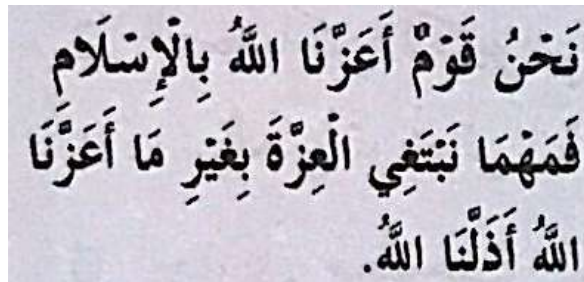 نَحْنُ قَوْمٌ أَعَزَّنَا اللَّهُ بِالْإِسْلَامِ
فَمَهْمَا نَبْتَغِي الْعِزَّةَ بِغَيْرِ مَا أَعَزَّنَا
اللَّهُ أَذَلَّنَا اللَّهُ.